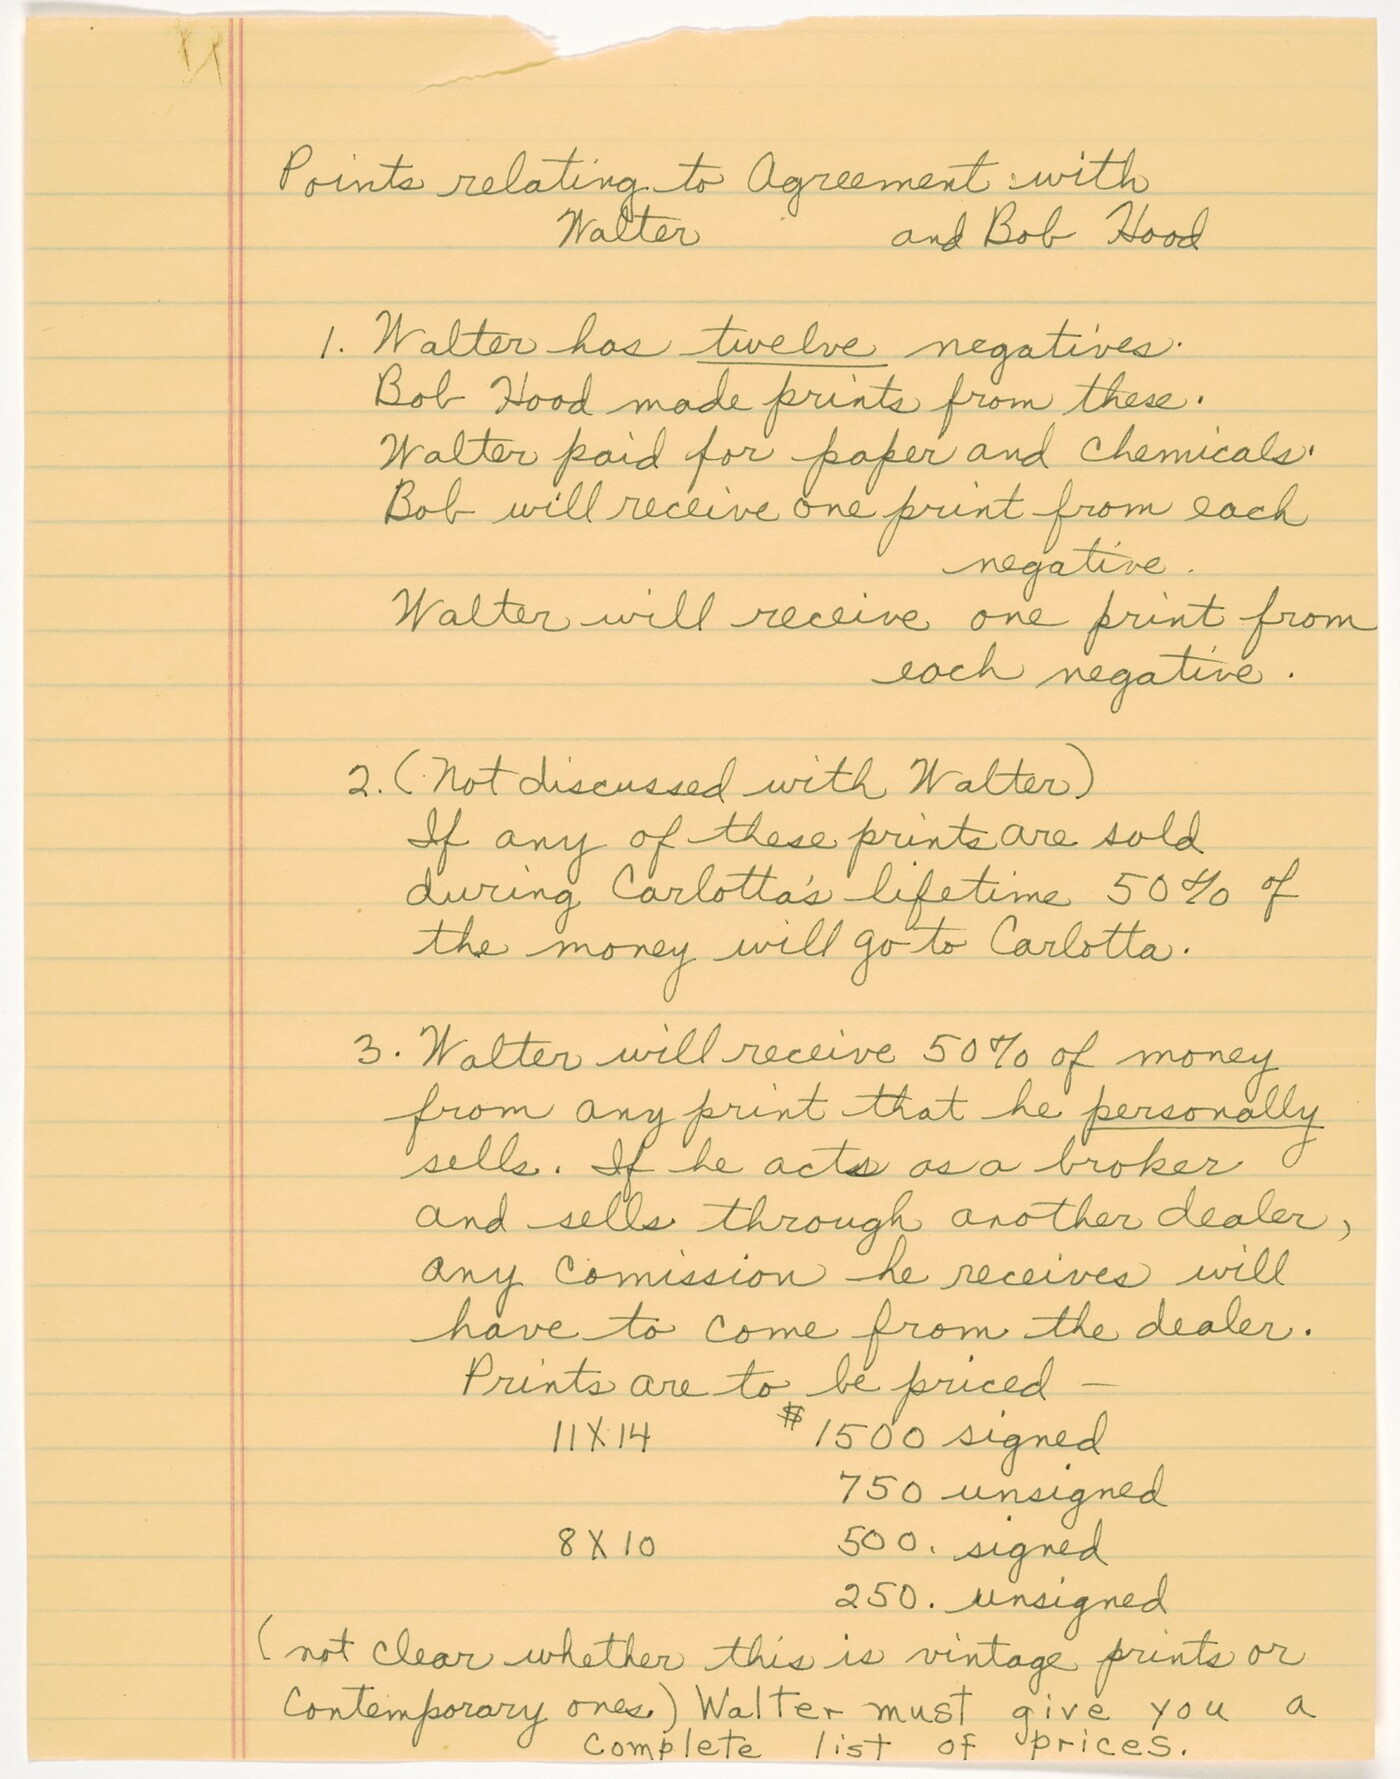 Points relating to Agreement with
Walter and Bob Hood
1. Walter has twelve negatives.
Bob Hood made prints from these.
Walter paid for paper and chemicals.
Bob will receive one print from each
negative.
Walter will receive one print from
each negative.
2. (Not discussed with Walter)
If any of these prints are sold
during Carlotta's lifetime 50% of
the money will go to Carlotta.
3. Walter will receive 50% of money
from any print that he personally
sells. If he acts as a broker
and sells through another dealer,
any comission he receives will
have to come from the dealer.
Prints are to be priced —
11X14 $1500 signed
750 unsigned
8X10 500. signed
250. unsigned
(not clear whether this is vintage prints or
contemporary ones.) Walter must give you a
complete list of prices.